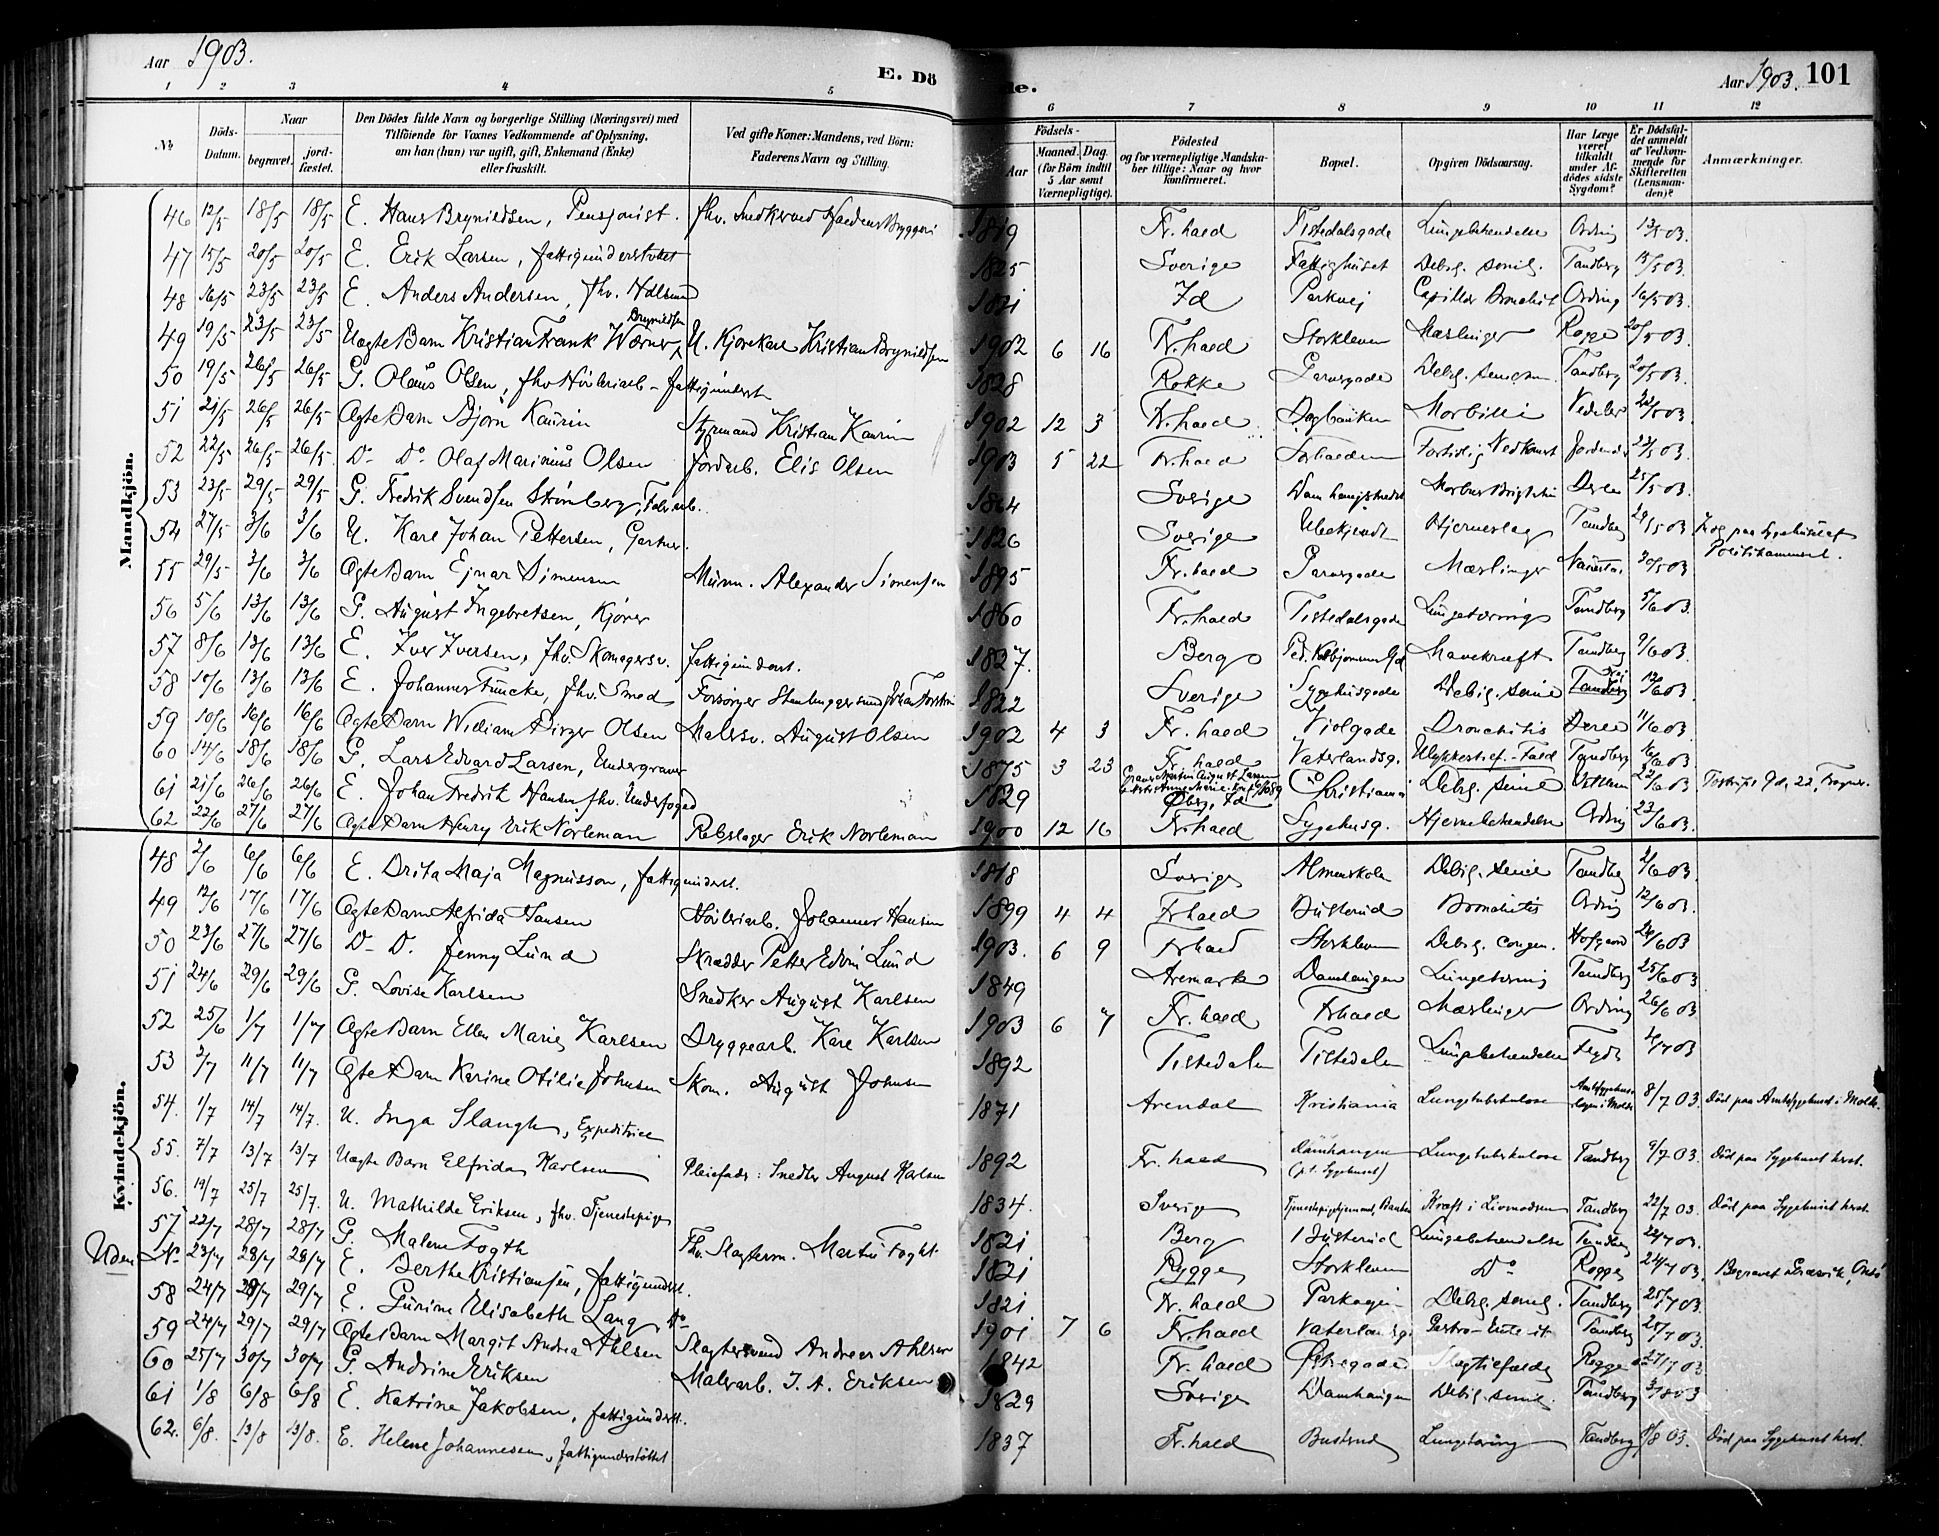 Aar 1903. E. Dö de. Aar 1903. 101
1 2 3 4 5 6 7 8 9 10 11 12
No Döds-Datum. Naar begravet. jordfæstet. Den Dödes fulde Navn og borgerlige Stilling (Næringsvei) med Tilföiende for Voxnes Vedkommende af Oplysning, om han (hun) var ugift, gift, Enkemand (Enke) eller fraskilt. Ved gifte Koner: Mandens, ved Börn: Faderens Navn og Stilling. Födsels- Aar Maaned. Dag. (for Børn indtil 5 Aar samt Værnepligtige). Födested og for værnepligtige Mandskaber tillige: Naar og hvor konfirmeret. Bopæl. Opgiven Dödsaarsag. Har Læge været tilkaldt under Afdödes sidste Sygdom? Er Dödsfaldet anmeldt af Vedkommende for Skifteretten (Lensmanden)? Anmærkninger.
Mandkjön.
46 12/5 18/5 18/5 E. Hans Brynildsen, Pensjonist. fhv. Snedker ved Haldens Bryggeri 1819 Fr.hald Tistedalsgade Lungebetændelse Ording 13/5 03.
47 15/5 20/5 20/5 E. Erik Larsen, fattigunderstöttet 1825 Sverige Fattighuset Debil. senil. Tandberg 15/5 03.
48 16/5 23/5 23/5 E. Anders Andersen, fhv. 1821 Id Parkvej Capillær Bronchit Ording 16/5 03.
49 19/5 23/5 23/5 Uægte Barn Kristian Frank Wærner Brynildsen U. Kjørekarl Kristian Brynildsen 1902 6 16 Fr.hald Storkleven Mæslinger Rogge 20/5 03.
50 19/5 26/5 26/5 G. Olaus Olsen, fhv. Høvleriarb - fattigunderst 1828 Rokke Garvergade Debil. Tandberg 20/5 03.
51 21/5 26/5 26/5 Ægte Barn Bjørn Kaurin Styrmand Kristian Kaurin 1902 12 3 Fr.hald Dybanken Morbilli Vedeler 22/5 03.
52 22/5 26/5 26/5 D- Do Olaf Marinius Olsen Jordarb. Elis Olsen 1903 5 22 Fr.hald Forhalden Fortidlig Nedkomst Jordmoder 23/5 03.
53 23/5 29/5 29/5 G. Fredrik Svendsen Strømberg, Fabr.arb. 1864 Sverige Damhaugstrædet Morbus Brightii 25/5 03.
54 27/5 3/6 3/6 U. Karl Johan Pettersen, Gartner. 1826 Sverige Ubekjendt Hjerneslag Tandberg 29/5 03 paa Sygehuset af Politikammeret.
55 29/5 3/6 3/6 Ægte Barn Ejnar Simensen Murm. Alexander Simensen 1895 Fr.hald Garvergade Mæslinger 30/5 03
56 5/6 13/6 13/6 G. August Ingebretsen, Kjører 1860 Fr.hald Tistedalsgade Lungetæring Tandberg 5/6 03.
57 8/6 13/6 13/6 E. Iver Iversen, fhv. Skomagersv. fattigunderst. 1827. Berg Ped. Kolbjørnsens Gd Mavekræft Tandberg 9/6 03.
58 10/6 13/6 13/6 E. Johannes Funcke, fhv. Smed Forsørger Stenhuggersvend Johan 1822 Sverige Sygehusgade Debil. senil Tandberg 12/6 03.
59 10/6 16/6 16/6 Ægte Barn William Birger Olsen Malersv. August Olsen 1902 4 3 Fr.hald Violgade Bronchitis 11/6 03.
60 14/6 18/6 18/6 G. Lars Edvard Larsen, Undergraver 1875 3 23 Fr.hald Vaterlandsg. Ulykkestilf. Fald Tandberg 16/6 03
61 21/6 26/6 26/6 E. Johan Fredrik Hansen, fhv. Underfoged 1829 Øberg, Id Christiania Debil. senil 22/6 03
62 22/6 27/6 27/6 Ægte Barn Henry Erik Norleman Rebslager Erik Norleman 1900 12 16 Fr.hald Sygehusg. Hjernebetændelse Ording 23/6 03.
Kvindekjön.
48 2/6 6/6 6/6 E. Brita Maja Magnusson, fattigunderst. 1818 Sverige Almueskolen Debil. senil Tandberg 2/6 03.
49 12/6 17/6 17/6 Ægte Barn Alfrida Hansen Høvleriarb. Johannes Hansen 1899 4 4 Fr.hald Busterud Bronchitis Ording 12/6 03.
50 23/6 27/6 27/6 D- D. Jenny Lund Skrædder Petter Edvin Lund 1903. 6 9 Fr.hald Storkleven Debil. congen. Hofgaard 24/6 03
51 24/6 29/6 29/6 G. Lovise Karlsen Snedker August Karlsen 1849 Aremark Damhaugen Lungetæring Tandberg 25/6 03
52 25/6 1/7 1/7 Ægte Barn Ellen Marie Karlsen Bryggearb. Karl Karlsen 1903 6 7 Fr.hald Fr.hald Mæslinger Ording 26/6 03
53 3/7 11/7 11/7 Ægte Barn Karine Otilie Johnsen Skom. August Johnsen 1892 Tistedalen Tistedalen Lungebetændelse 03
54. 1/7 14/7 14/7. U. Inga Slangh, Expeditrice 1871 Arendal Kristiania Lungetuberkulose Amtssygehuslægen i Molde 8/7 03. Död paa Amtssygehuset i Molde.
55. 7/7 13/7 13/7. Uægte Barn Elfrida Karlsen Pleiefader: Snedker August Karlsen 1892 Fr.hald Damhaugen (pt. Sygehuset) Lungetuberkulose Tandberg 9/7 03. Död paa Sygehuset herst.
56. 19/7 25/7 25/7. U. Mathilde Eriksen, fhv. Tjenestepige 1834. Sverige Tjenestepigehjemmet, Banken Kræft i Livmoderen Tandberg 22/7 03. Död paa Sygehuset herst.
57 22/7 28/7 28/7 G. Malene Fogth Fhv. Slagterm. Martin Foght. 1821 Berg Busterud Lungebetændelse Tandberg 22/7 03.
Uden No 23/7 28/7 28/7 E. Berthe Kristiansen, fattigunderst. 1821 Rygge Storkleven Do Rogge 24/7 03. Begravet Onsø
58 24/7 29/7 29/7 E. Gurine Elisabeth Lang, do 1821 Fr.hald Parkvejen Debil. senil. Tandberg 25/7 03.
59 24/7 29/7 29/7 Ægte Barn Margit Andrea Ahlsen Slagtersvend Andreas Ahlsen 1901 7 6 Fr.hald Vaterlandsg. Gastro-Enterit Tandberg 25/7 03
60 25/7 30/7 30/7 G. Andrine Eriksen Malerarb. J. A. Eriksen 1842 Fr.hald Østregade Slagtilfælde Rogge 27/7 03
61 1/8 6/8 6/8 E. Katrine Jakobsen, fattigunderst. 1829 Sverige Damhaugen Debil. senil. Tandberg 3/8 03
62. 6/8. 13/8 13/8. E. Helene Johannesen, fattigunderstöttet 1837 Fr.hald Busterud Lungetæring Tandberg 8/8 03. Död paa Sygehuset herst.